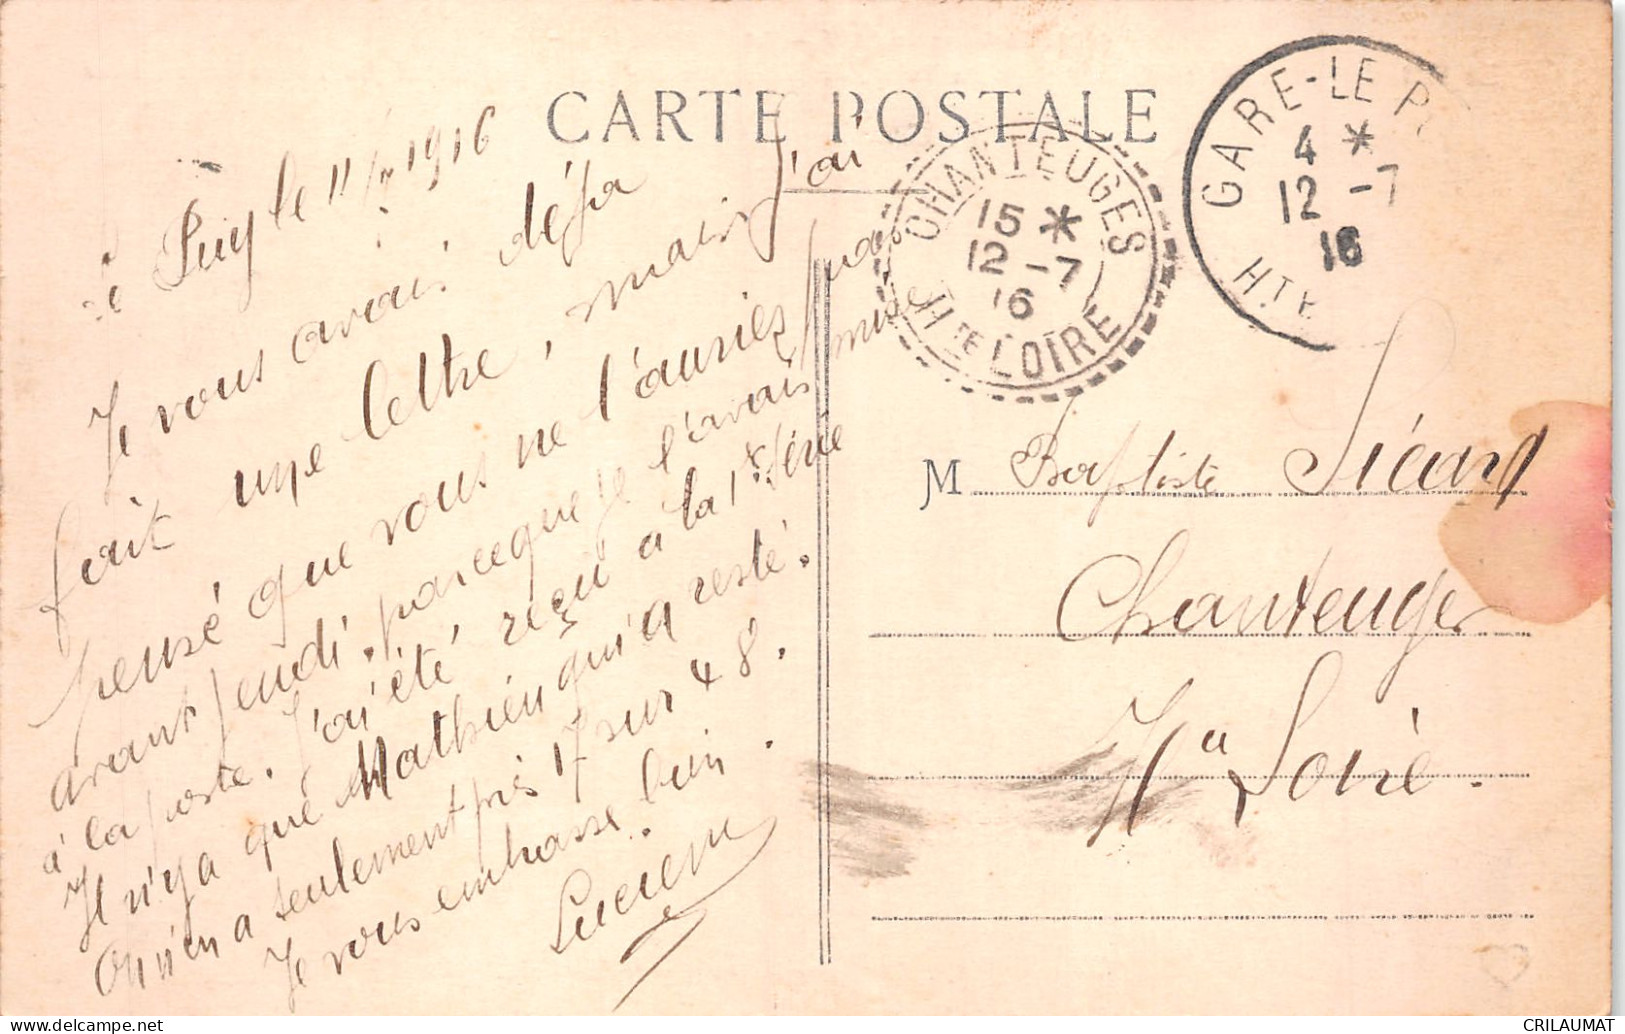 CARTE POSTALE
Le Puy le 11/7 1916
Je vous avais déjà
fait une lettre, mais j'ai
pensé que vous ne l'auriez pas
avant jeudi, parceque je l'avais mise
à la poste. J'ai été reçu à la 1re Série
Il n'y a que Mathieu qui a resté.
On n'en a seulement pris 17 sur 48.
Je vous embrasse bien.
Lucien
CHANTEUGES
15 *
12 -7
16
HTE LOIRE
GARE-LE P
4 *
12 -7
16
HTE
M Baptiste Sicard
Chanteuges
Hte Loire.
CRILAUMAT